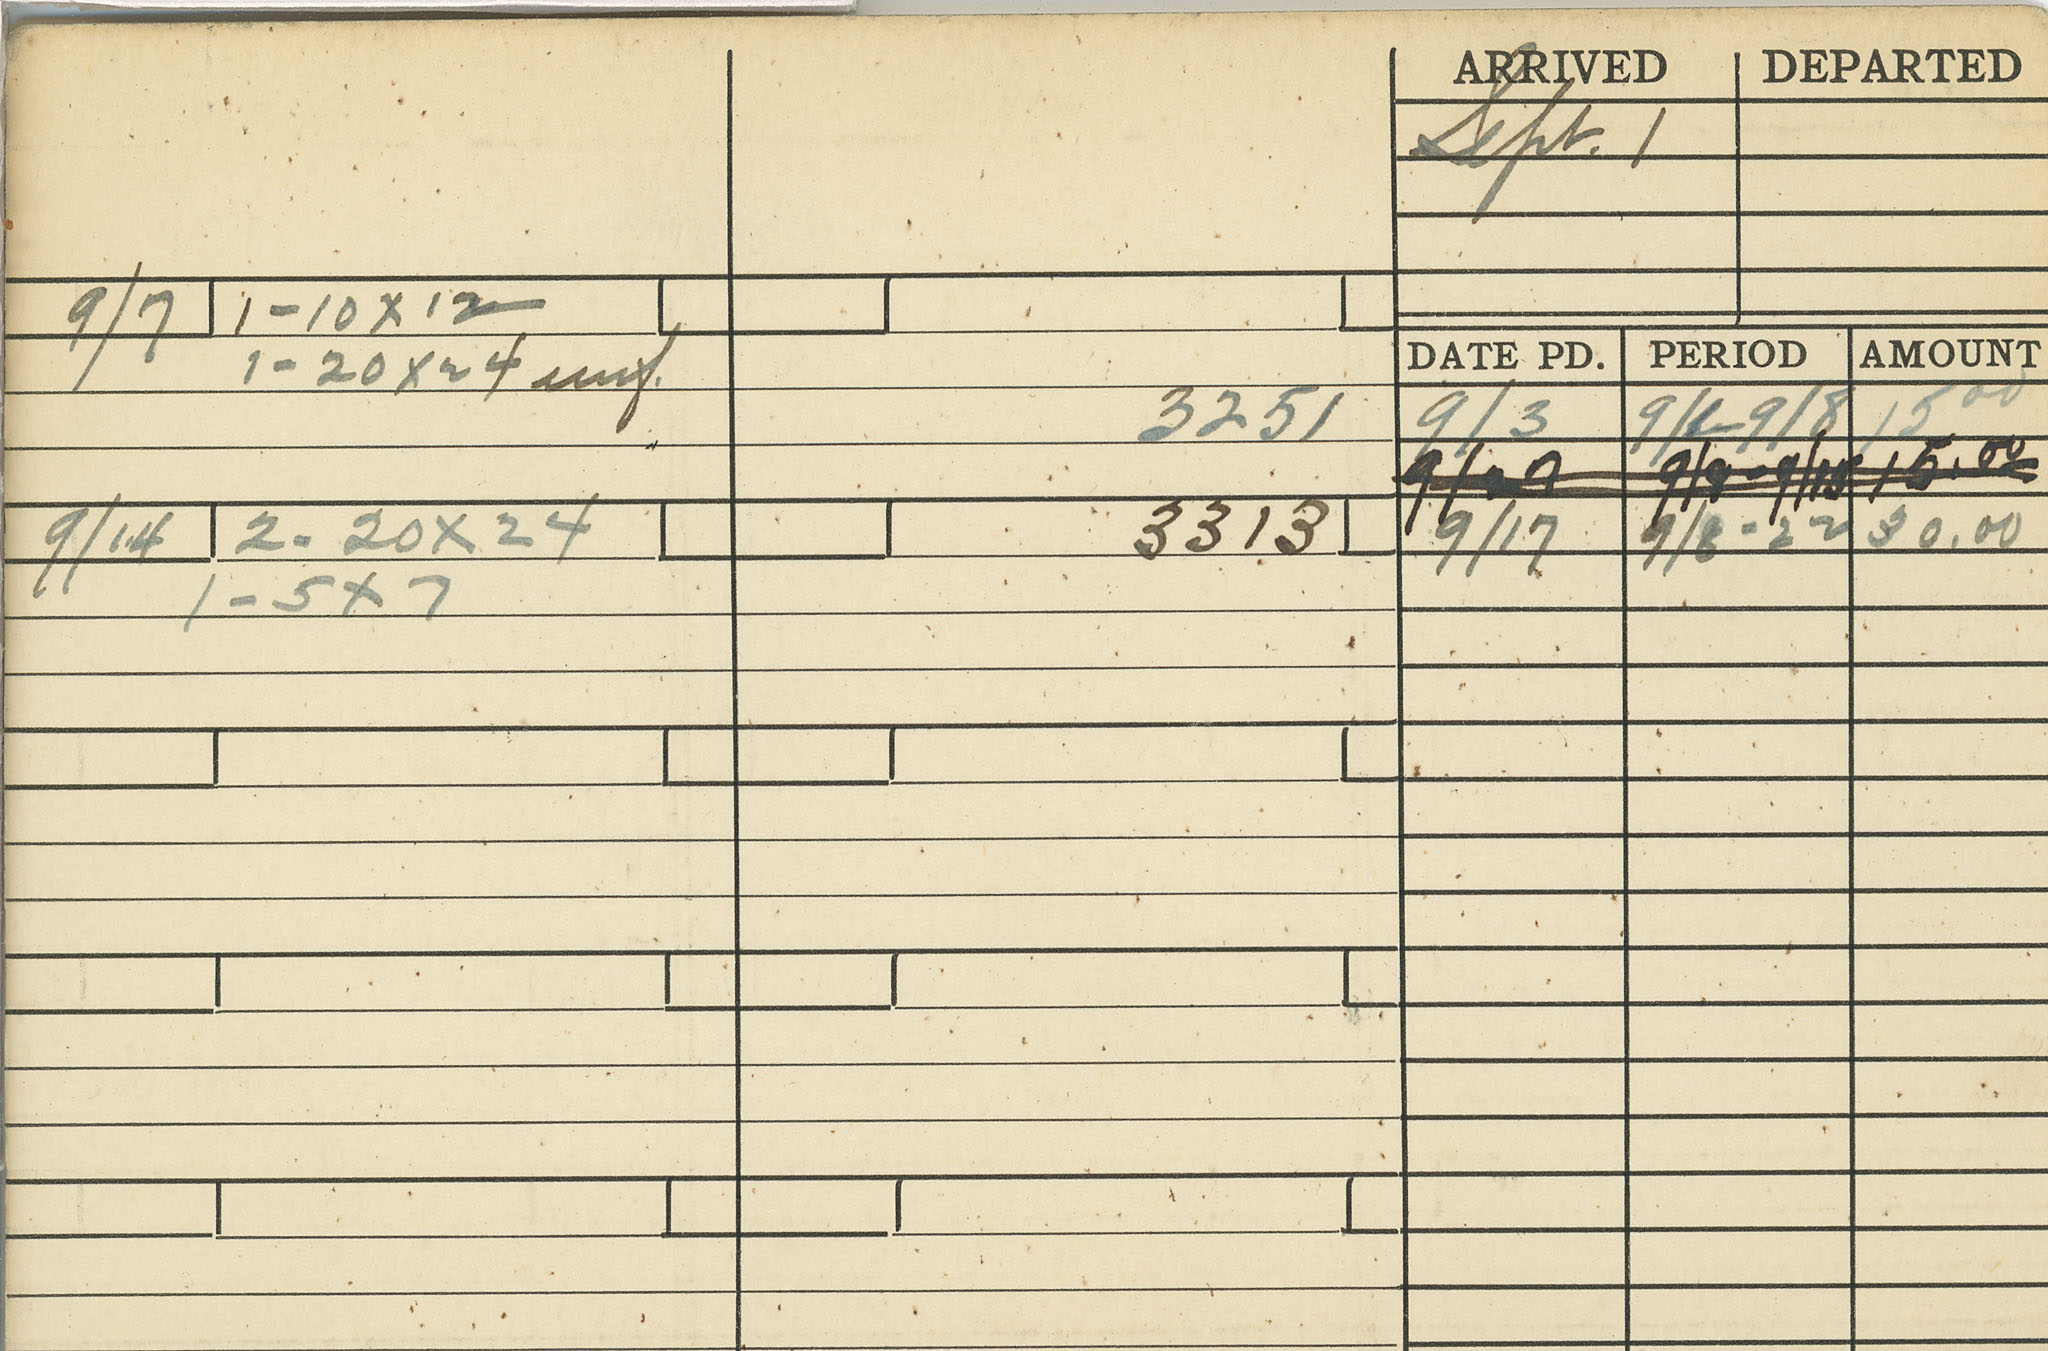 ARRIVED DEPARTED
Sept. 1
9/7 1-10x12
1-20x24
DATE PD. PERIOD AMOUNT
3251 9/3 9/1-9/8 15 00
9/ 7 9/8-9/15 15.00
9/14 2-20x24 3313 9/17 9/8-22 30.00
1-5x7